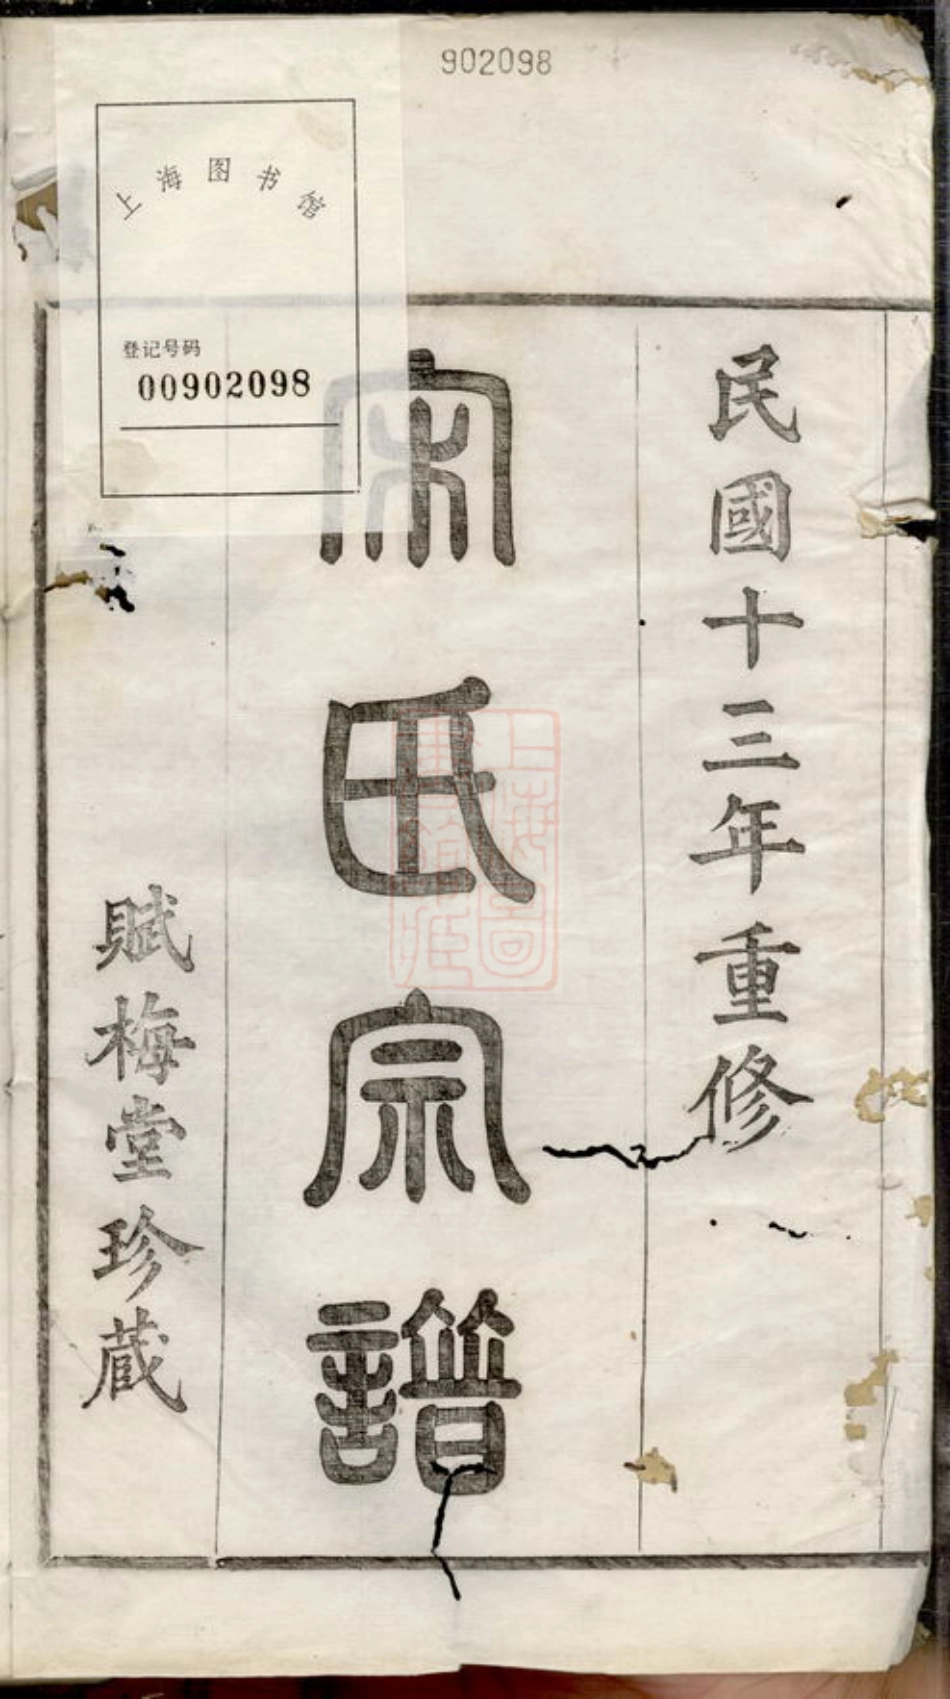 902098
上海图书馆
登记号码
00902098
民國十三年重修
宋氏宗譜
賦梅堂珍藏